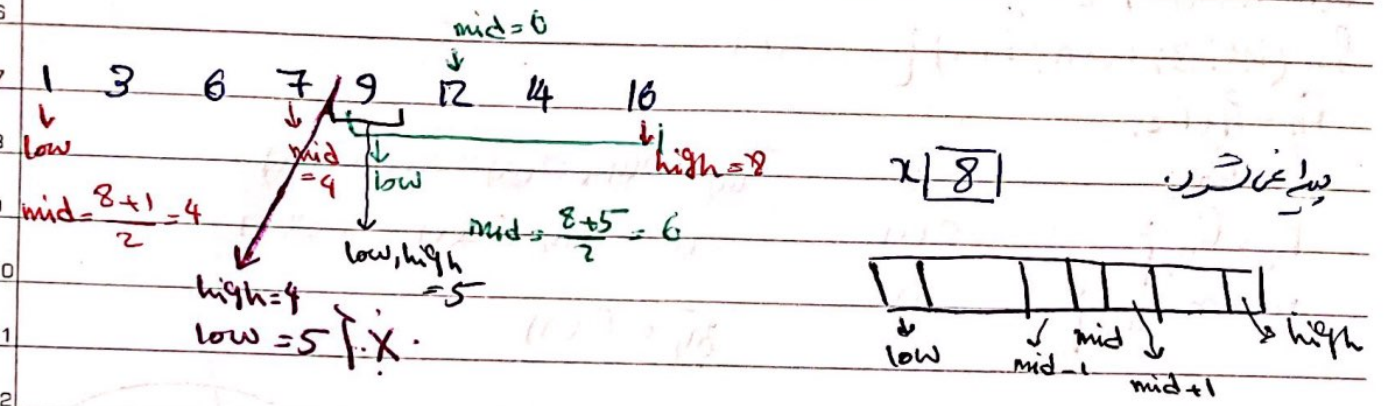 mid = 6
1 3 6 7 9 12 14 16
low
mid = 4
low
high = 8
x 8
پیدا نمی‌شود.
mid = 8+1/2 = 4
mid = 8+5/2 = 6
low, high = 5
high = 4
low = 5
low mid-1 mid mid+1 high